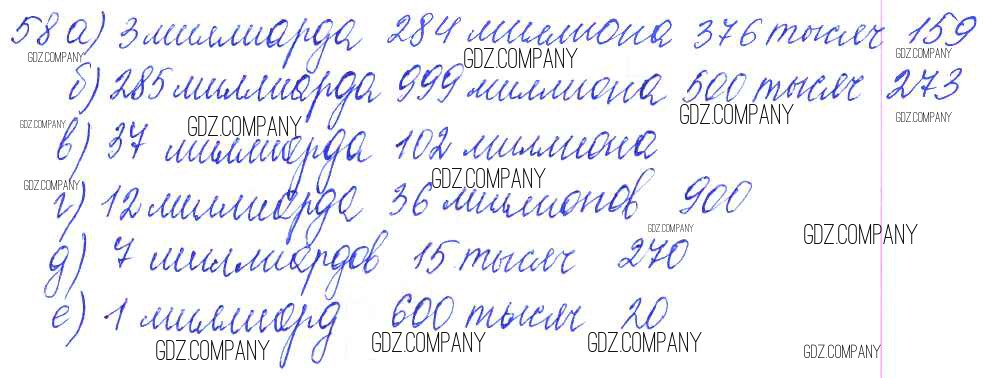 58 а) 3 миллиарда 284 миллиона 376 тысяч 159
GDZ.COMPANY GDZ.COMPANY GDZ.COMPANY
б) 285 миллиарда 999 миллиона 500 тысяч 273
GDZ.COMPANY GDZ.COMPANY GDZ.COMPANY GDZ.COMPANY
в) 37 миллиарда 102 миллиона
GDZ.COMPANY GDZ.COMPANY
г) 12 миллиарда 36 миллионов 900
GDZ.COMPANY GDZ.COMPANY
д) 7 миллиардов 15 тысяч 270
е) 1 миллиард 600 тысяч 20
GDZ.COMPANY GDZ.COMPANY GDZ.COMPANY GDZ.COMPANY